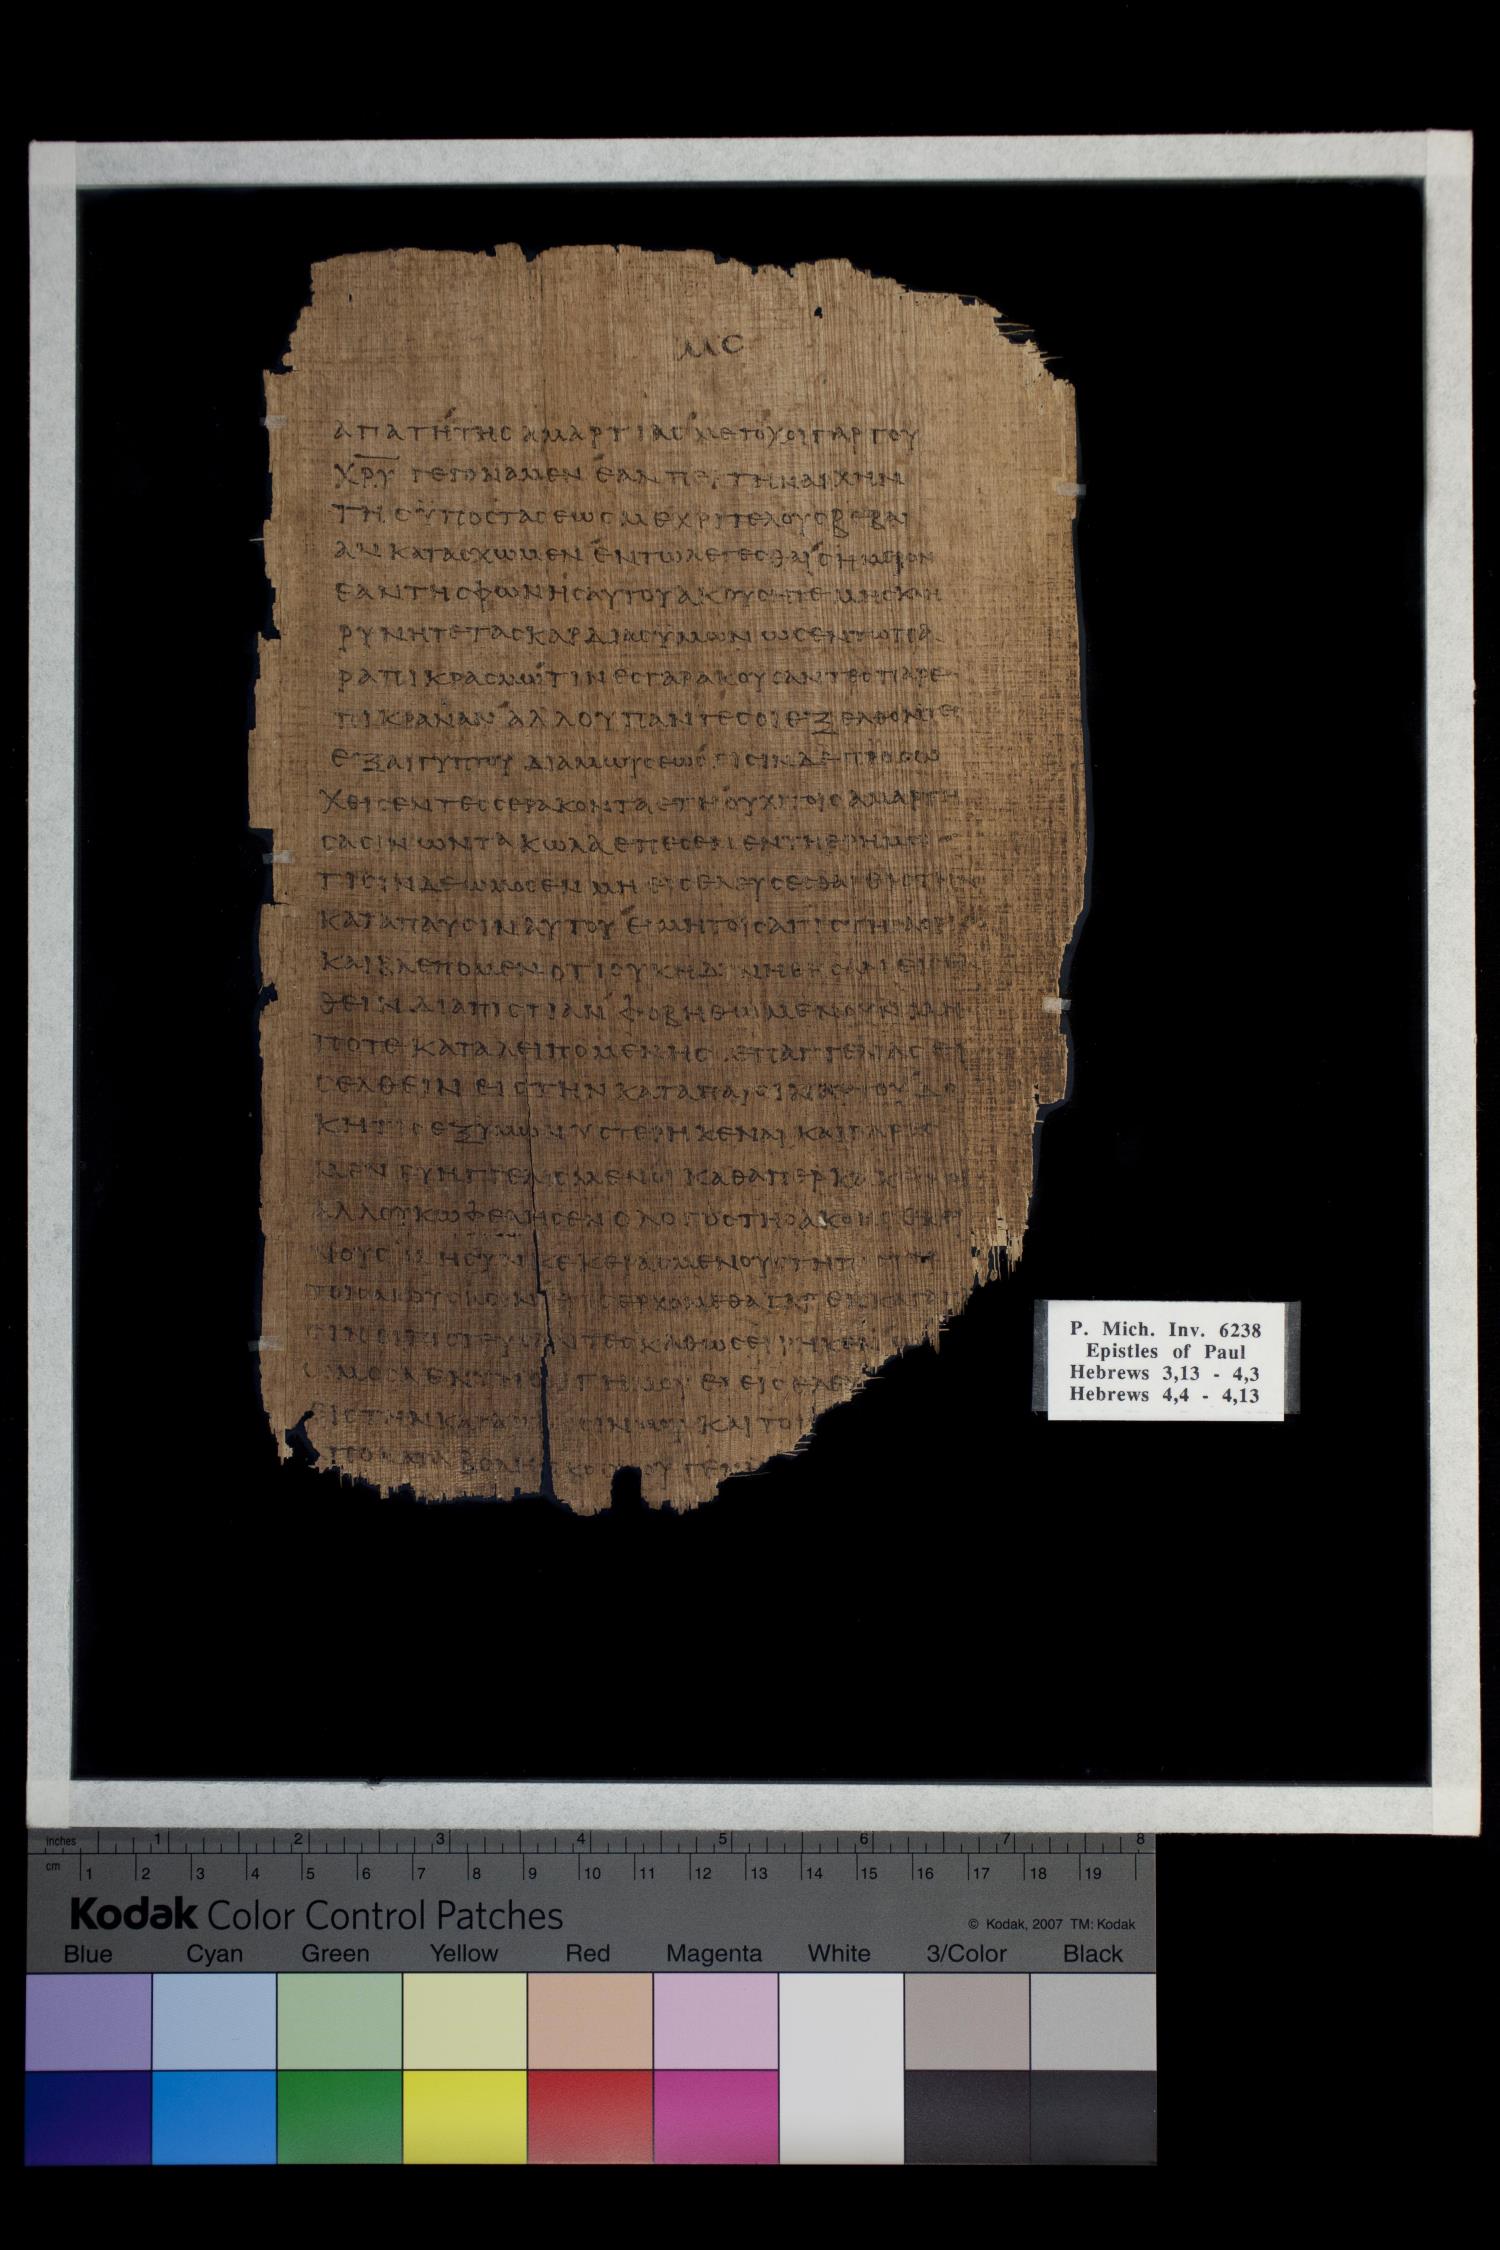 μϛ
απατητης αμαρτιας μετοχοι γαρ του
χρυ γεγοναμεν εαν περ την αρχην
της ϋποστασεως μεχρι τελους βεβαι
αν κατασχωμεν εν τω λεγεσθαι σημερον
εαν της φωνης αυτου ακουσητε μη σκλη
ρυνητε τας καρδιας ϋμων ως εν τω πα
ραπικρασμω τινες γαρ ακουσαντες παρε
πικραναν αλλ ου παντες οι εξελθοντες
εξ αιγυπτου δια μωυσεως τισιν δε προσω
χθεισεν τεσσερακοντα ετη ουχι τοις αμαρτη
σασιν ων τα κωλα επεσεν εν τη ερημω
τισιν δε ωμοσεν μη εισελευσεσθαι εις την
καταπαυσιν αυτου ει μη τοις απιστησασι
και βλεπομεν οτι ουκ ηδυνηθησαν εισελ
θειν δια πιστιαν φοβηθωμεν ουν μη
ποτε καταλειπομενης επαγγελιας ει
σελθειν εις την καταπαυσιν αυτου δο
κη τις εξ υμων υστερηκεναι και γαρ
μεν ευηγγελισμενοι καθαπερ
αλλ ουκ ωφελησεν ο λογος της ακοης
νους μη συνκεκερασμενους τη
εισερχομεθα γαρ
πιστευσαντες καθως ειρηκεν
ωμοσα εν τη οργη μου ει εισελευ
εις την καταπαυσιν μου και τοι
απο καταβολης κοσμου γενη
P. Mich. Inv. 6238
Epistles of Paul
Hebrews 3,13 - 4,3
Hebrews 4,4 - 4,13
inches 1 2 3 4 5 6 7 8
cm 1 2 3 4 5 6 7 8 9 10 11 12 13 14 15 16 17 18 19
Kodak Color Control Patches © Kodak, 2007 TM: Kodak
Blue Cyan Green Yellow Red Magenta White 3/Color Black